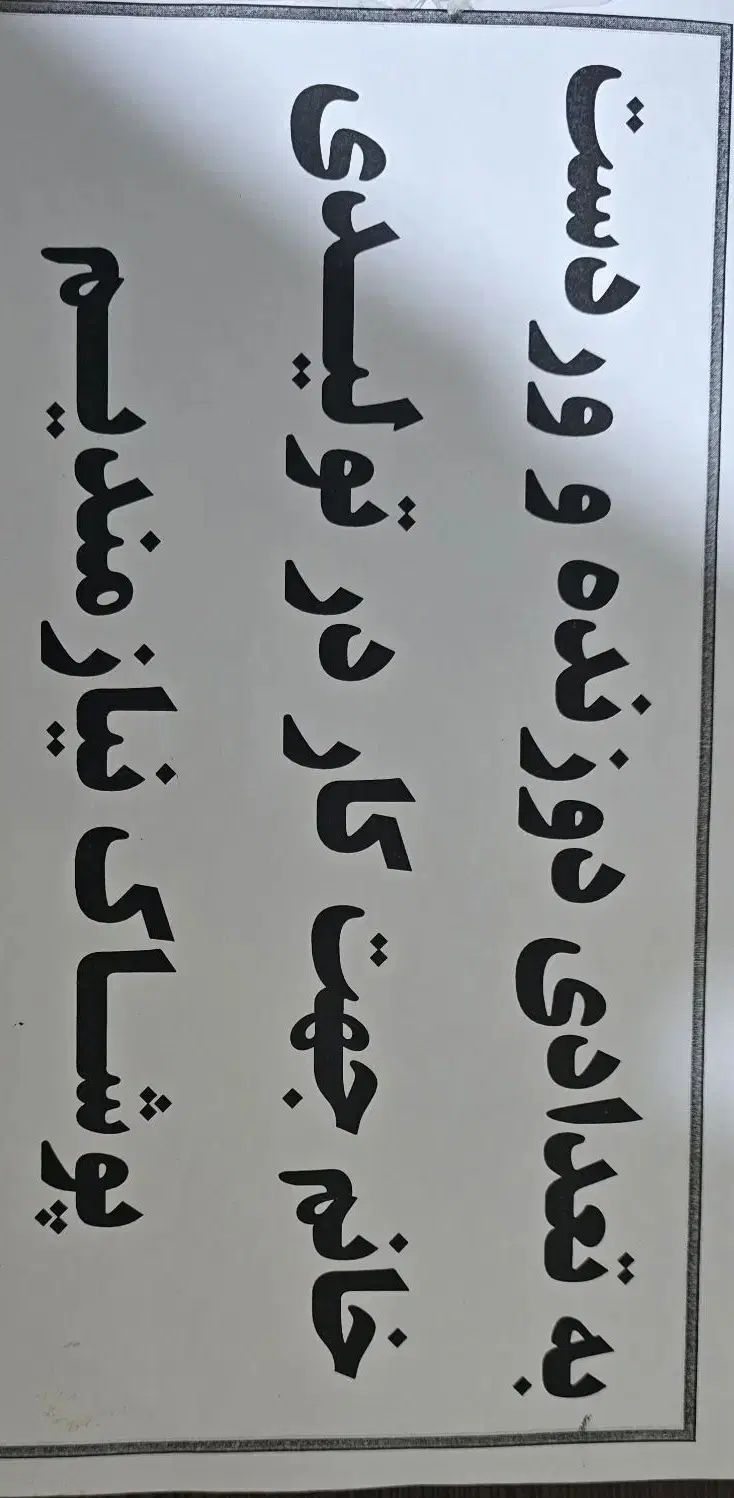 به تعدادی دوزنده و ور دست
خانم جهت کار در تولیدی
پوشاک نیازمندیم